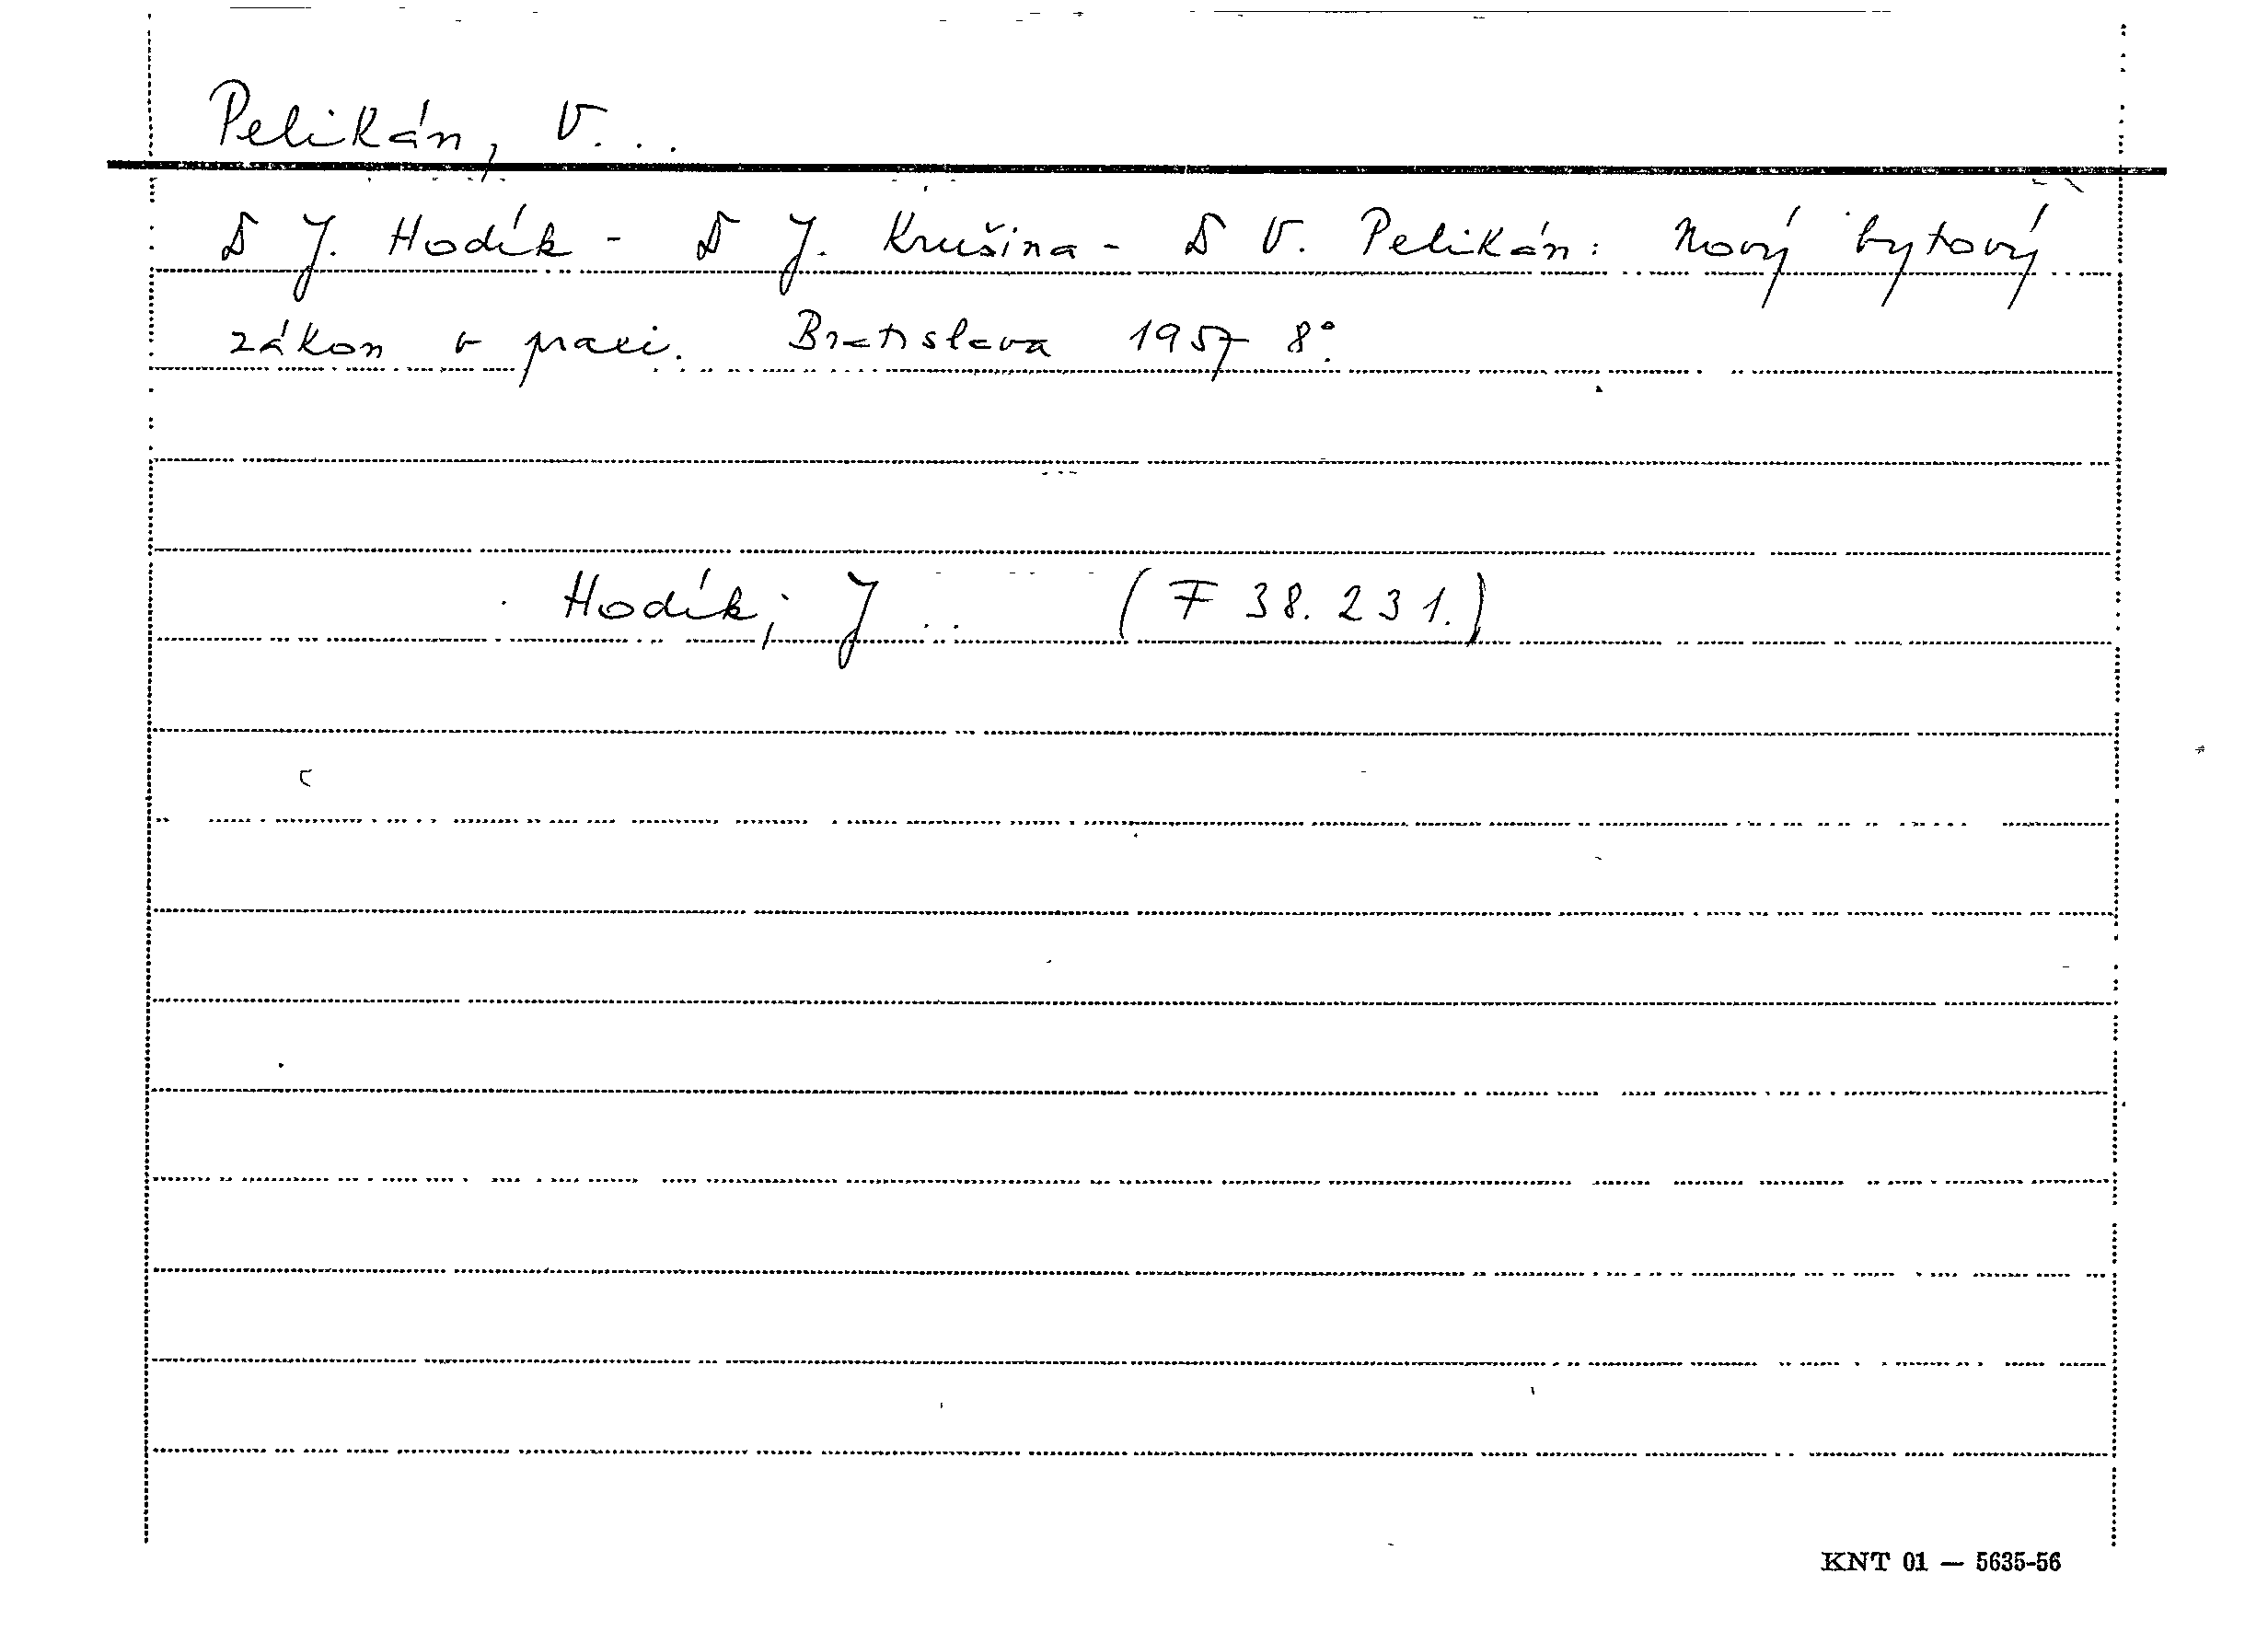 Pelikán, V...
D J. Hodík - D J. Krušina - D V. Pelikán: Nový bytový
zákon v praxi. Bratislava 1957 8°.
Hodík, J .. (F 38.231.)
KNT 01 — 5635-56